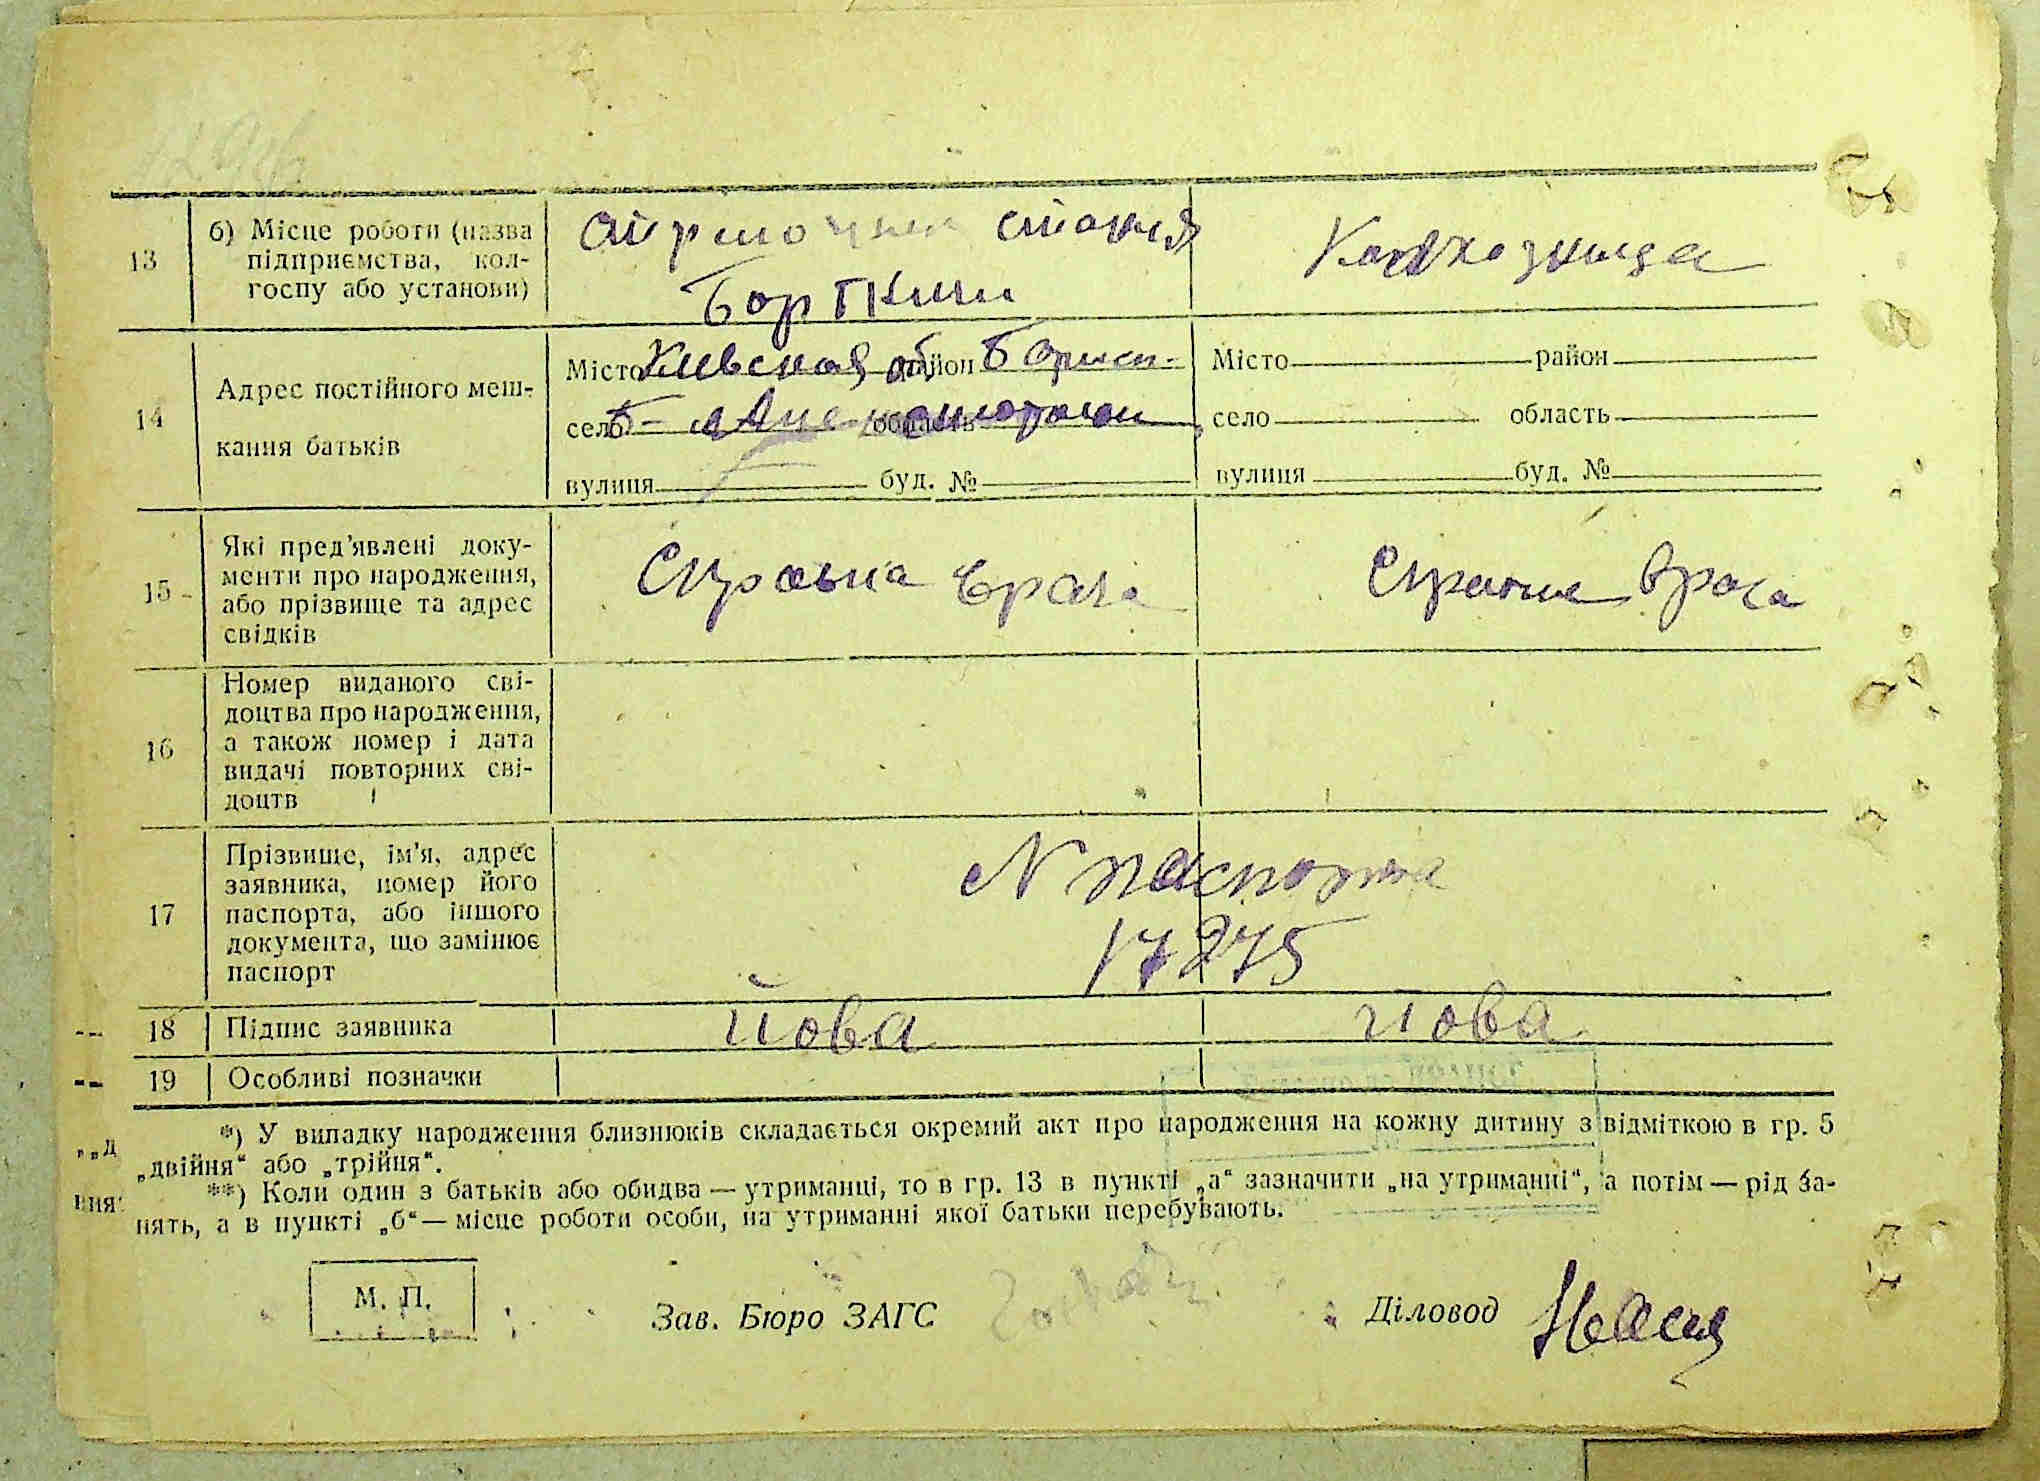 13
б) Місце роботи (назва
підприємства, кол-
госпу або установи)
станция
Бортничи
Колхозница
14
Адрес постійного меш-
кання батьків
Місто Киевская об район Борисп-
село область
вулиця буд. №
Місто район
село область
вулиця буд. №
15
Які пред'явлені доку-
менти про народження,
або прізвище та адрес
свідків
Справка врача
Справка врача
16
Номер виданого сві-
доцтва про народження,
а також номер і дата
видачі повторних сві-
доцтв
17
Прізвище, ім'я, адрес
заявника, номер його
паспорта, або іншого
документа, що замінює
паспорт
N паспорта
17275
18 Підпис заявника
Йова
Йова
19 Особливі позначки
*) У випадку народження близнюків складається окремий акт про народження на кожну дитину з відміткою в гр. 5
„двійня“ або „трійня“.
**) Коли один з батьків або обидва — утриманці, то в гр. 13 в пункті „а“ зазначити „на утриманні“, а потім — рід за-
нять, а в пункті „б“ — місце роботи особи, на утриманні якої батьки перебувають.
М. П.
Зав. Бюро ЗАГС
Діловод